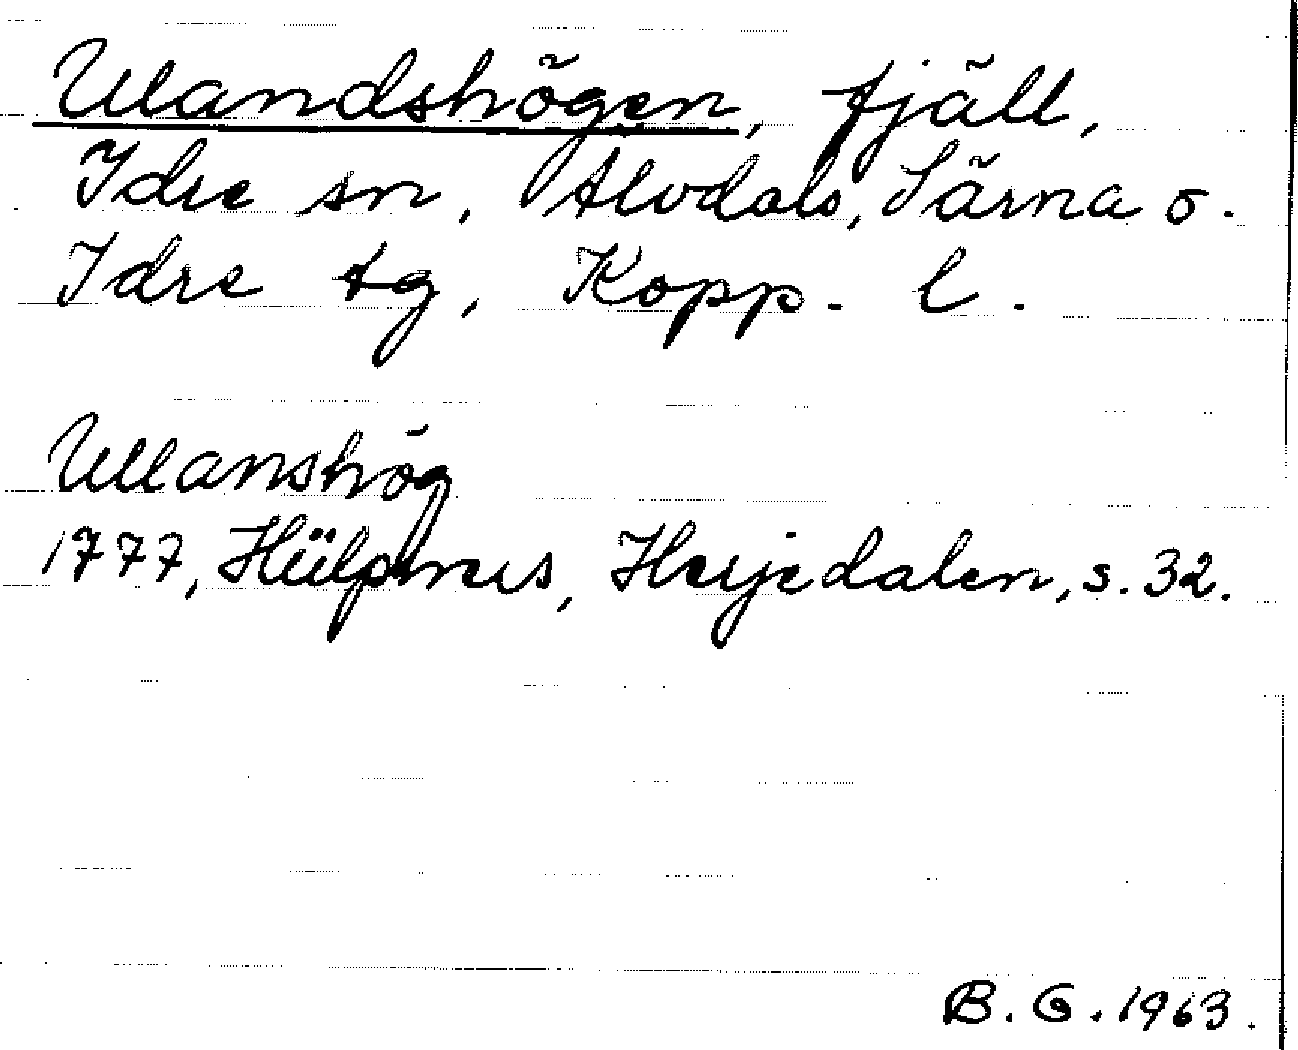 Ulandshögen, fjäll,
Idre sn, Älvdals, Särna o.
Idre tg, Kopp. l.
Ullanshög
1777, Hülphers, Herjedalen, s. 32.
B. G. 1963.